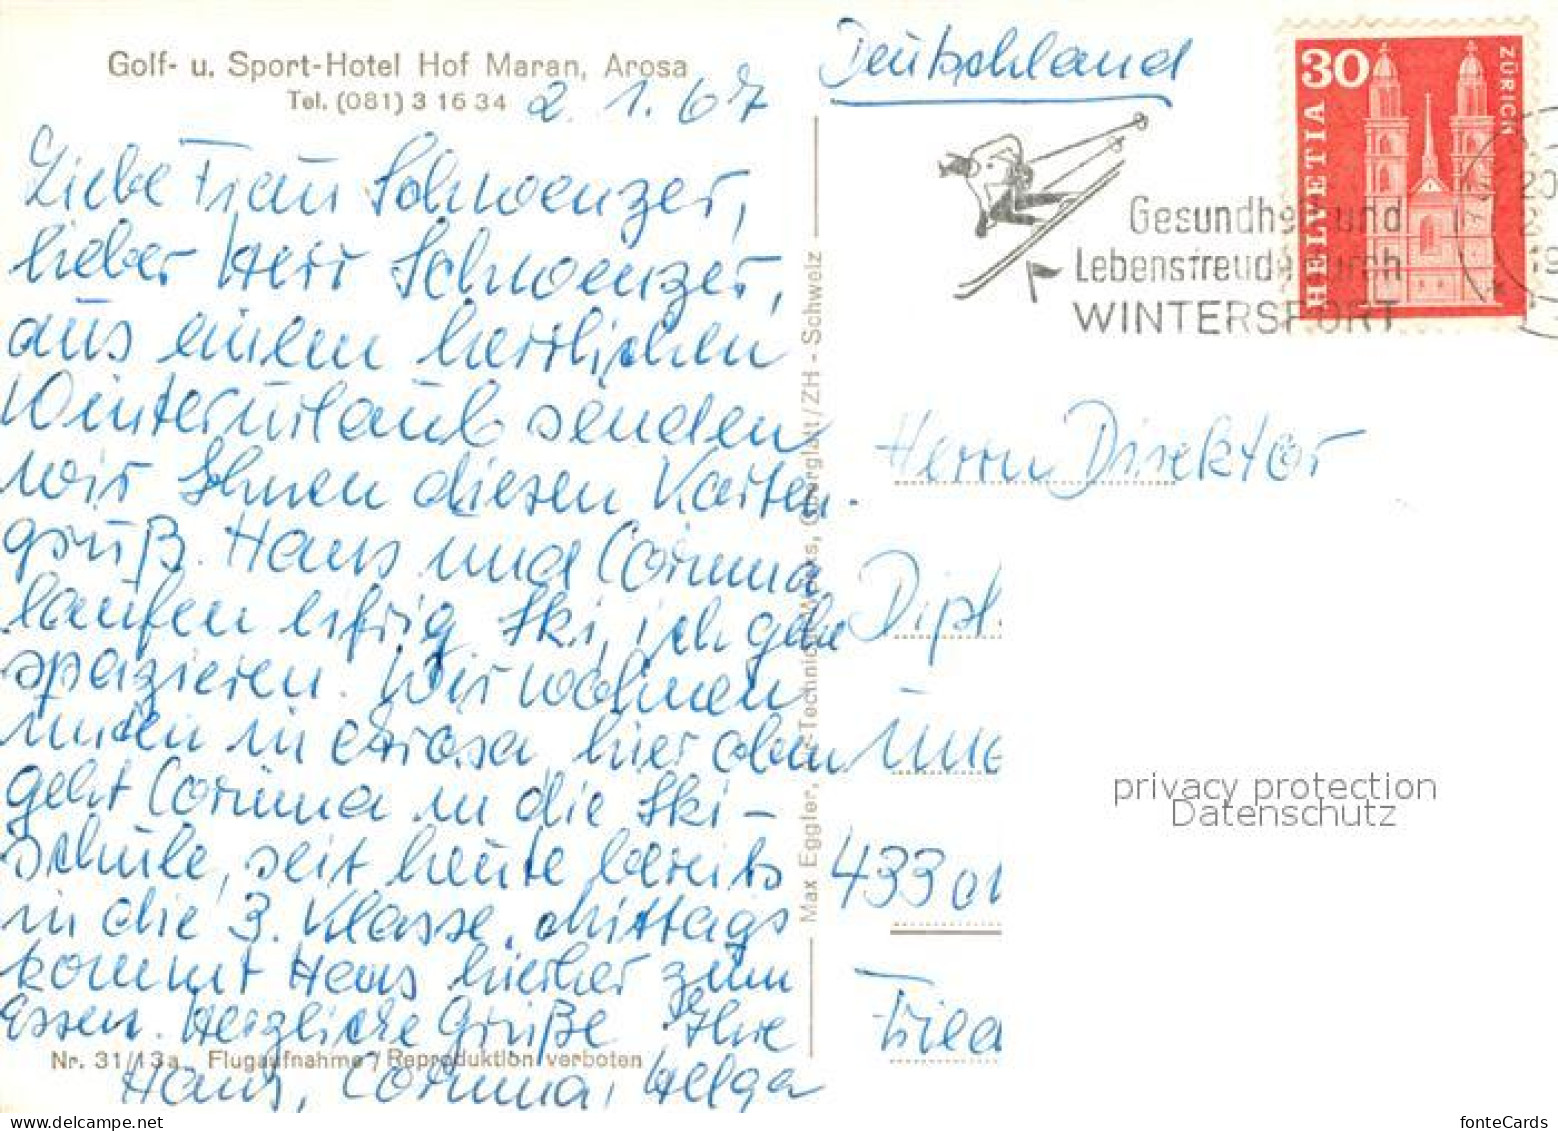 Golf- u. Sport-Hotel Hof Maran, Arosa
Tel. (081) 3 16 34
2. 1. 67
Liebe Frau Schwenzer,
lieber Herr Schwenzer,
aus einem herrlichen
Winterurlaub senden
wir Ihnen diesen Karten-
gruß. Hans und Corinna
laufen eifrig Ski, ich gehe
spazieren. Wir wohnen
unten in Arosa, hier oben
geht Corinna in die Ski-
schule, seit heute bereits
in die 3. Klasse. Mittags
kommt Hans hierher zum
Essen. Herzliche Grüße Ihre
Hans, Corinna, Helga
Nr. 31/13a Flugaufnahme / Reproduktion verboten
Max Eggler, Oberglatt/ZH - Schweiz
Deutschland
Gesundheit und
Lebensfreude durch
WINTERSPORT
30
HELVETIA
ZÜRICH
20
Herrn Direktor
Dipl.
433
Fried
privacy protection
Datenschutz
fonteCards